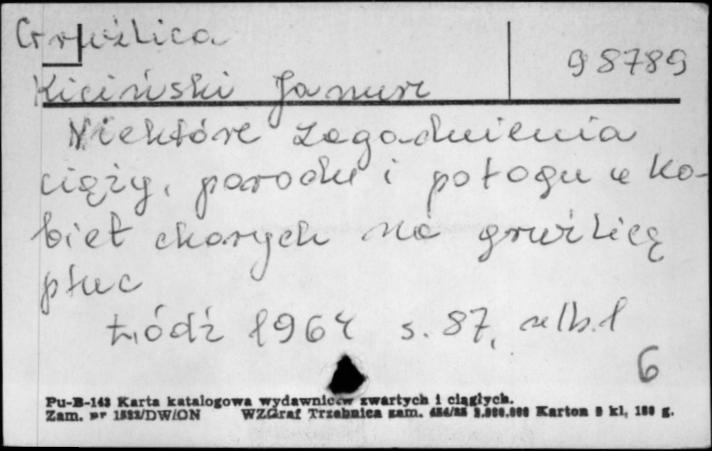 Gruźlica
98789
Kiciński Janusz
Niektóre zagadnienia
ciąży, porodu i połogu u ko-
biet chorych na gruźlicę
płuc
Łódź 1964 s. 87, nlb. 1
6
Pu-B-143 Karta katalogowa wydawnictw zwartych i ciągłych.
Zam. nr 1532/DW/ON WZGraf Trzebnica zam. Karton kl, g.